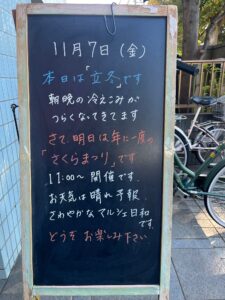 11月7日（金）
本日は「立冬」です
朝晩の冷えこみが
つらくなってきてます
さて、明日は年に一度の
「さくらまつり」です
11:00〜 開催です
お天気は晴れ予報
さわやかなマルシェ日和
です
どうぞ お楽しみ下さい